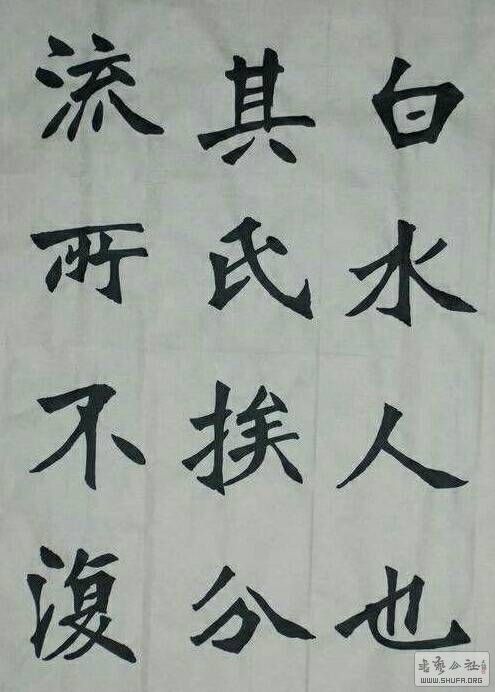 白水人也
其氏族分
流所不復
书艺公社
WWW.SHUFA.ORG